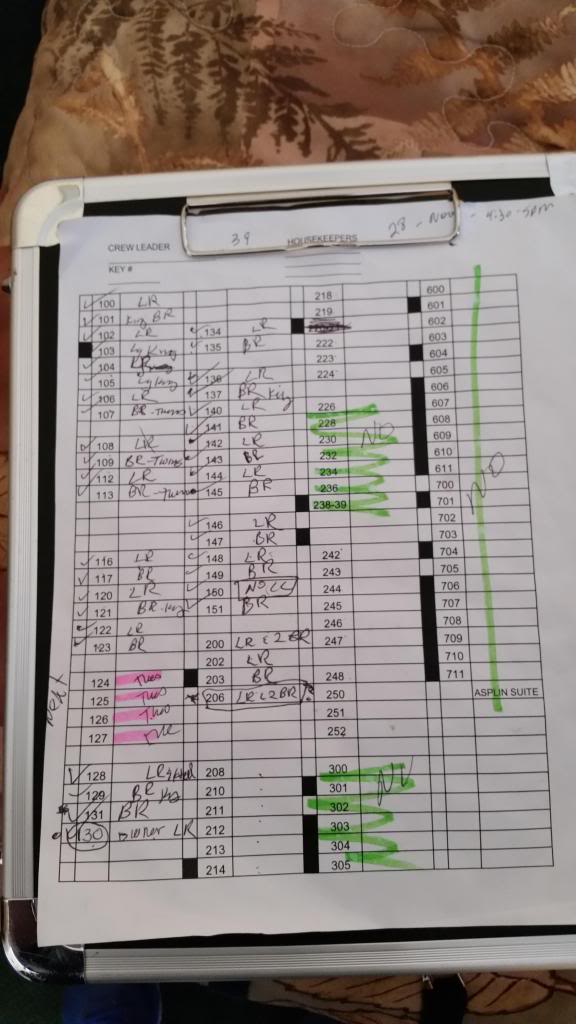 CREW LEADER 39 HOUSEKEEPERS 28 - Nov - 4:30-5pm
KEY #
100 LR 218 600
101 King BR 219 601
102 LR 134 LR 602
103 Lg King 135 BR 222 603
104 223 604
105 Lg King 136 LR 224 605
106 LR 137 BR King 606
107 BR-Twins 140 LR 226 607
141 BR 228 608
108 LR 142 LR 230 NO 609
109 BR-Twins 143 BR 232 610
112 LR 144 LR 234 611
113 BR-Twins 145 BR 236 700 NO
238-39 701
146 LR 702
147 BR 703
116 LR 148 LR 242 704
117 BR 149 BR 243 705
120 LR 150 NO CC 244 706
121 BR-King 151 BR 245 707
122 LR 246 708
123 BR 200 LR & 2 BR 247 709
202 LR 710
124 203 BR 248 711
125 206 LR & 2BR 250 ASPLIN SUITE
126 251
127 252
Next
128 LR 208 300 NO
129 BR King 210 301
131 BR 211 302
130 owner LR 212 303
213 304
214 305